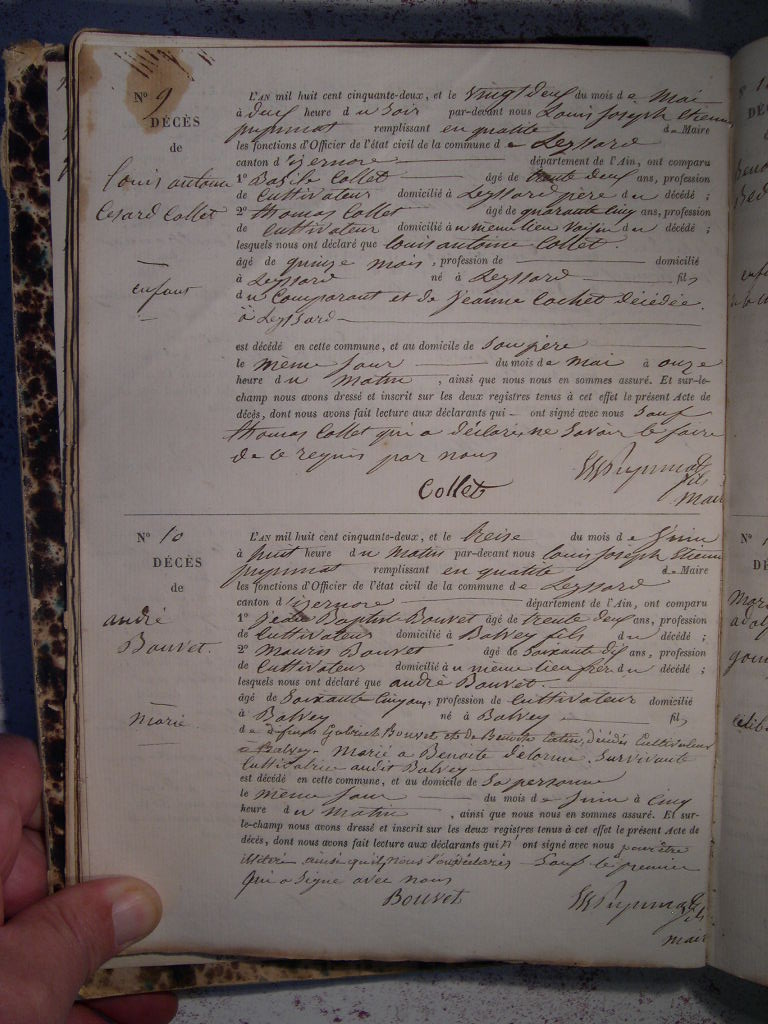 N° 9
DÉCÈS
de
Louis antoine
Cesard Collet
enfant
L'AN mil huit cent cinquante-deux, et le vingt deux du mois de Mai
à deux heure du Soir par-devant nous Louis Joseph Etienne
puynmat remplissant en qualité de Maire
les fonctions d'Officier de l'état civil de la commune de Leyssard
canton d'izernore département de l'Ain, ont comparu
1° Bazile Collet âgé de trente deux ans, profession
de Cultivateur domicilié à Leyssard père du décédé ;
2° thomas Collet âgé de quarante cinq ans, profession
de Cultivateur domicilié à u même lieu voisin du décédé ;
lesquels nous ont déclaré que louis antoine Collet
âgé de quinze mois, profession de domicilié
à Leyssard né à Leyssard fils
du Comparant et de Jeanne Cochet décédée
à Leyssard
est décédé en cette commune, et au domicile de son père
le même jour du mois de mai à onze
heure du matin, ainsi que nous nous en sommes assuré. Et sur-le-
champ nous avons dressé et inscrit sur les deux registres tenus à cet effet le présent Acte de
décès, dont nous avons fait lecture aux déclarants qui - ont signé avec nous Sauf
thomas Collet qui a déclaré ne Savoir le faire
de ce requis par nous
Collet
fils
maire
N° 10
DÉCÈS
de
andré
Bouvet.
marié
L'AN mil huit cent cinquante-deux, et le treise du mois de Juin
à huit heure du matin par-devant nous Louis Joseph Etienne
puynmat remplissant en qualité de Maire
les fonctions d'Officier de l'état civil de la commune de Leyssard
canton d'izernore département de l'Ain, ont comparu
1° Jean Baptiste Bouvet âgé de trente deux ans, profession
de Cultivateur domicilié à Balvey fils du décédé ;
2° Mauris Bouvet âgé de Soixante dix ans, profession
de Cultivateur domicilié à u même lieu frère du décédé ;
lesquels nous ont déclaré que andré Bouvet
âgé de Soixante cinq ans, profession de Cultivateur domicilié
à Balvey né à Balvey fils
de défunt Gabriel Bouvet et de Benoite décédés Cultivateurs
a Balvey - Marié a Benoite delorme, Survivante
Cultivatrice audit Balvey
est décédé en cette commune, et au domicile de Sa personne
le même jour du mois de Juin à Cinq
heure du matin, ainsi que nous nous en sommes assuré. Et sur-
le-champ nous avons dressé et inscrit sur les deux registres tenus à cet effet le présent Acte de
décès, dont nous avons fait lecture aux déclarants qui n' ont signé avec nous pour être
illiteré ainsi qu'il nous l'ont déclaré - Sauf le premier
qui a Signé avec nous
Bouvet
fils
maire